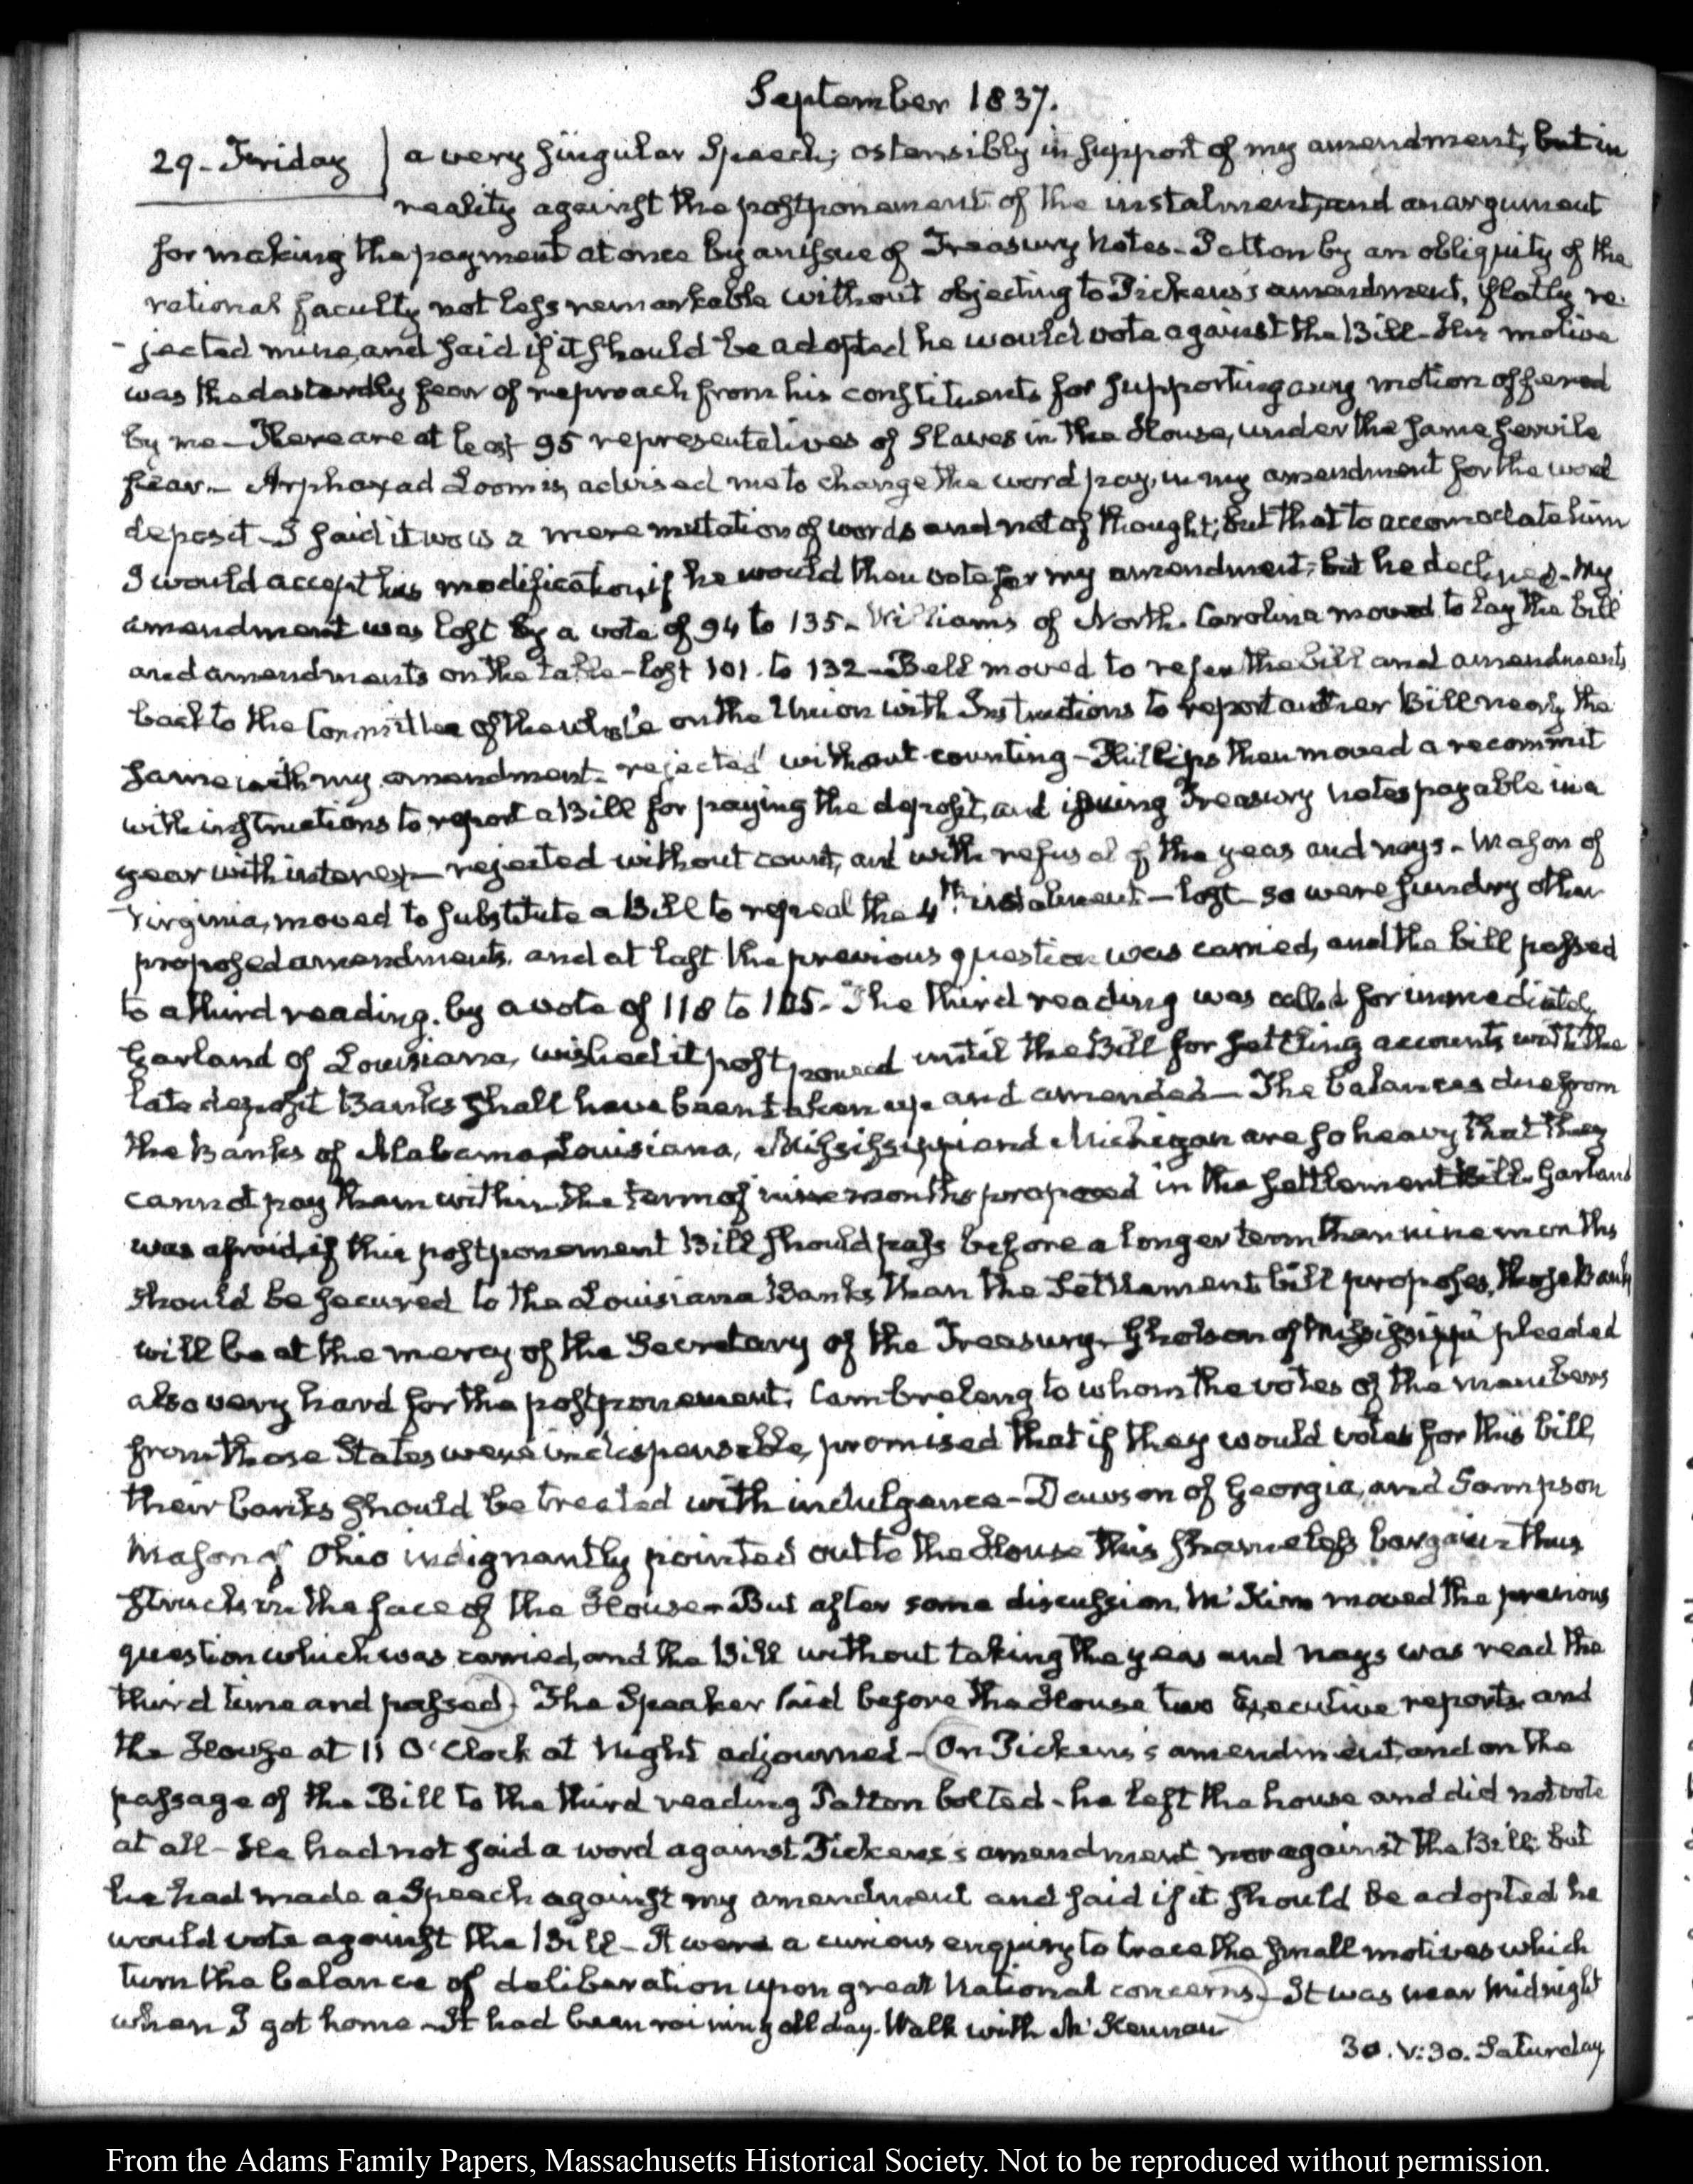 September 1837.
29 - Friday } a very singular Speech; ostensibly in support of my amendment, but in
reality against the postponement of the instalment, and an argument
for making the payment at once by an issue of Treasury Notes - Patton by an obliquity of the
rational faculty not less remarkable without objecting to Pickens's amendment, flatly re-
-jected mine, and said if it should be adopted he would vote against the Bill - His motive
was the dastardly fear of reproach from his constituents for supporting any motion offered
by me - There are at least 95 representatives of Slaves in the House, under the same servile
fear. - Arphaxad Loomis, advised me to change the word pay, in my amendment for the word
deposit - I said it was a mere mutation of words and not of thought; but that to accomodate him
I would accept his modification, if he would then vote for my amendment; but he declined - My
amendment was lost by a vote of 94 to 135 - Williams of North Carolina moved to lay the bill
and amendments on the table - lost 101 to 132 - Bell moved to refer the bill and amendments
back to the Committee of the whole on the Union with Instructions to report another Bill nearly the
same with my amendment - rejected without counting - Phillips then moved a recommit
with instructions to report a Bill for paying the deposit, and issuing Treasury notes payable in a
year with interest - rejected without count, and with refusal of the yeas and nays - Mason of
Virginia, moved to substitute a Bill to repeal the 4th instalment - lost - so were sundry other
proposed amendments, and at last the previous question was carried, and the bill passed
to a third reading, by a vote of 118 to 105 - The third reading was called for immediately
Garland of Louisiana, wished it postponed until the Bill for settling accounts with the
late deposit Banks shall have been taken up and amended - The balances due from
the Banks of Alabama, Louisiana, Mississippi and Michigan are so heavy that they
cannot pay them within the term of nine months proposed in the settlement Bill. Garland
was afraid, if this postponement Bill should pass before a longer term than nine months
should be secured to the Louisiana Banks, than the Settlement bill proposes, those Banks
will be at the mercy of the Secretary of the Treasury. Gholson of Mississippi pleaded
also very hard for the postponement. Cambreleng to whom the votes of the members
from those States were indispensable, promised that if they would vote for this bill,
their banks should be treated with indulgence - Dawson of Georgia, and Sampson
Mason of Ohio indignantly pointed out to the House this shameless bargain thus
struck in the face of the House - But after some discussion, Mc.Kim moved the previous
question which was carried, and the Bill without taking the yeas and nays was read the
third time and passed. The Speaker laid before the House two Executive reports and
the House at 11 O'Clock at Night adjourned - On Pickens's amendment, and on the
passage of the Bill to the third reading Patton bolted - he left the house and did not vote
at all - He had not said a word against Pickens's amendment nor against the Bill; but
he had made a Speech against my amendment and said if it should be adopted he
would vote against the Bill - It were a curious enquiry to trace the small motives which
turn the balance of deliberation upon great National concerns - It was near midnight
when I got home - It had been raining all day. Walk with Mc.Kennan
30. V:30. Saturday
From the Adams Family Papers, Massachusetts Historical Society. Not to be reproduced without permission.